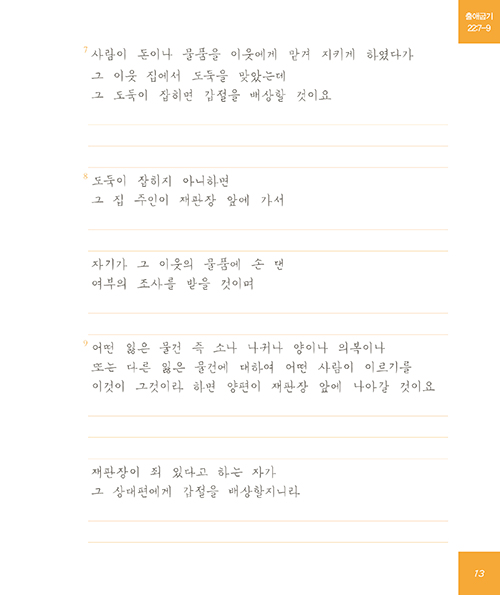 출애굽기
22:7-9
7 사람이 돈이나 물품을 이웃에게 맡겨 지키게 하였다가
그 이웃 집에서 도둑을 맞았는데
그 도둑이 잡히면 갑절을 배상할 것이요
8 도둑이 잡히지 아니하면
그 집 주인이 재판장 앞에 가서
자기가 그 이웃의 물품에 손 댄
여부의 조사를 받을 것이며
9 어떤 잃은 물건 즉 소나 나귀나 양이나 의복이나
또는 다른 잃은 물건에 대하여 어떤 사람이 이르기를
이것이 그것이라 하면 양편이 재판장 앞에 나아갈 것이요
재판장이 죄 있다고 하는 자가
그 상대편에게 갑절을 배상할지니라
13